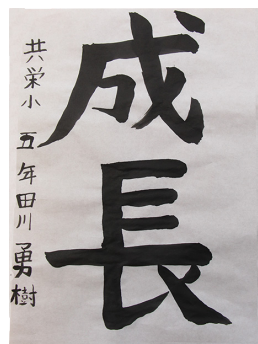 成長
共栄小 五年 田川 勇樹